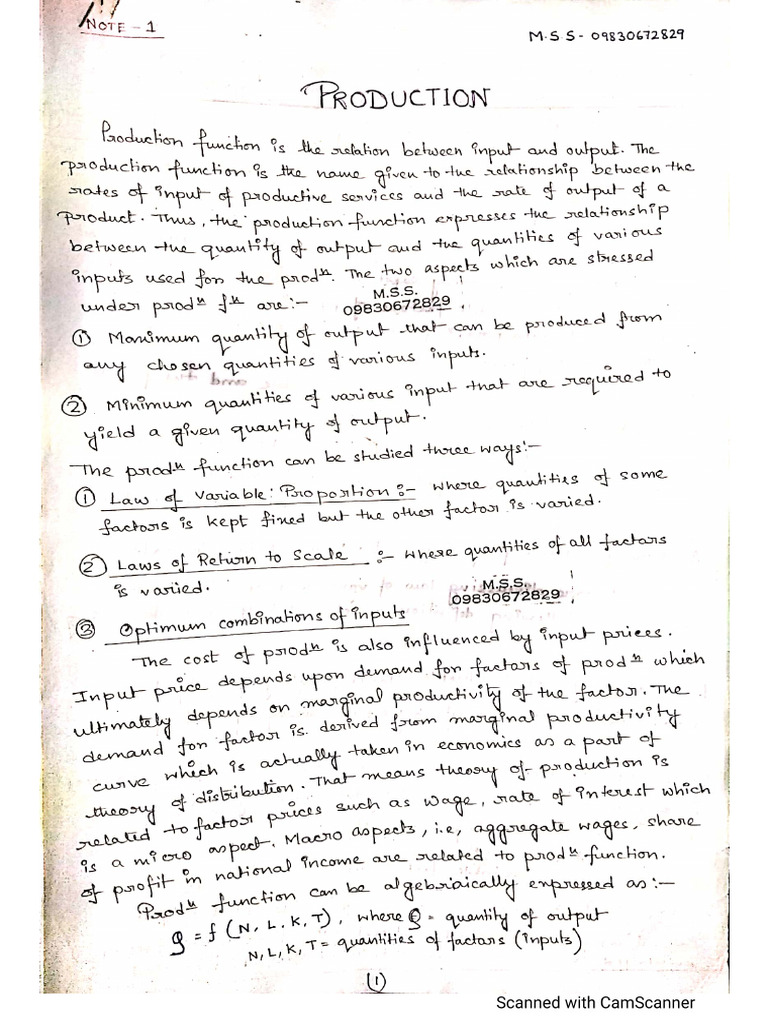 NOTE - 1
M.S.S - 09830672829
PRODUCTION
Production function is the relation between input and output. The
production function is the name given to the relationship between the
rates of input of productive services and the rate of output of a
product. Thus, the production function expresses the relationship
between the quantity of output and the quantities of various
inputs used for the prodⁿ. The two aspects which are stressed
under prodⁿ fⁿ are:-
M.S.S.
09830672829
① Maximum quantity of output that can be produced from
any chosen quantities of various inputs.
② Minimum quantities of various input that are required to
yield a given quantity of output.
The prodⁿ function can be studied three ways:-
① Law of Variable Proportion :- where quantities of some
factors is kept fixed but the other factor is varied.
② Laws of Return to Scale :- where quantities of all factors
is varied.
M.S.S.
09830672829
③ Optimum combinations of inputs
The cost of prodⁿ is also influenced by input prices.
Input price depends upon demand for factors of prodⁿ which
ultimately depends on marginal productivity of the factor. The
demand for factor is derived from marginal productivity
curve which is actually taken in economics as a part of
theory of distribution. That means theory of production is
related to factor prices such as wage, rate of interest which
is a micro aspect. Macro aspects, i.e, aggregate wages, share
of profit in national income are related to prodⁿ function.
Prodⁿ function can be algebraically expressed as:-
Q = f (N, L, K, T), where Q = quantity of output
N, L, K, T = quantities of factors (inputs)
(1)
Scanned with CamScanner